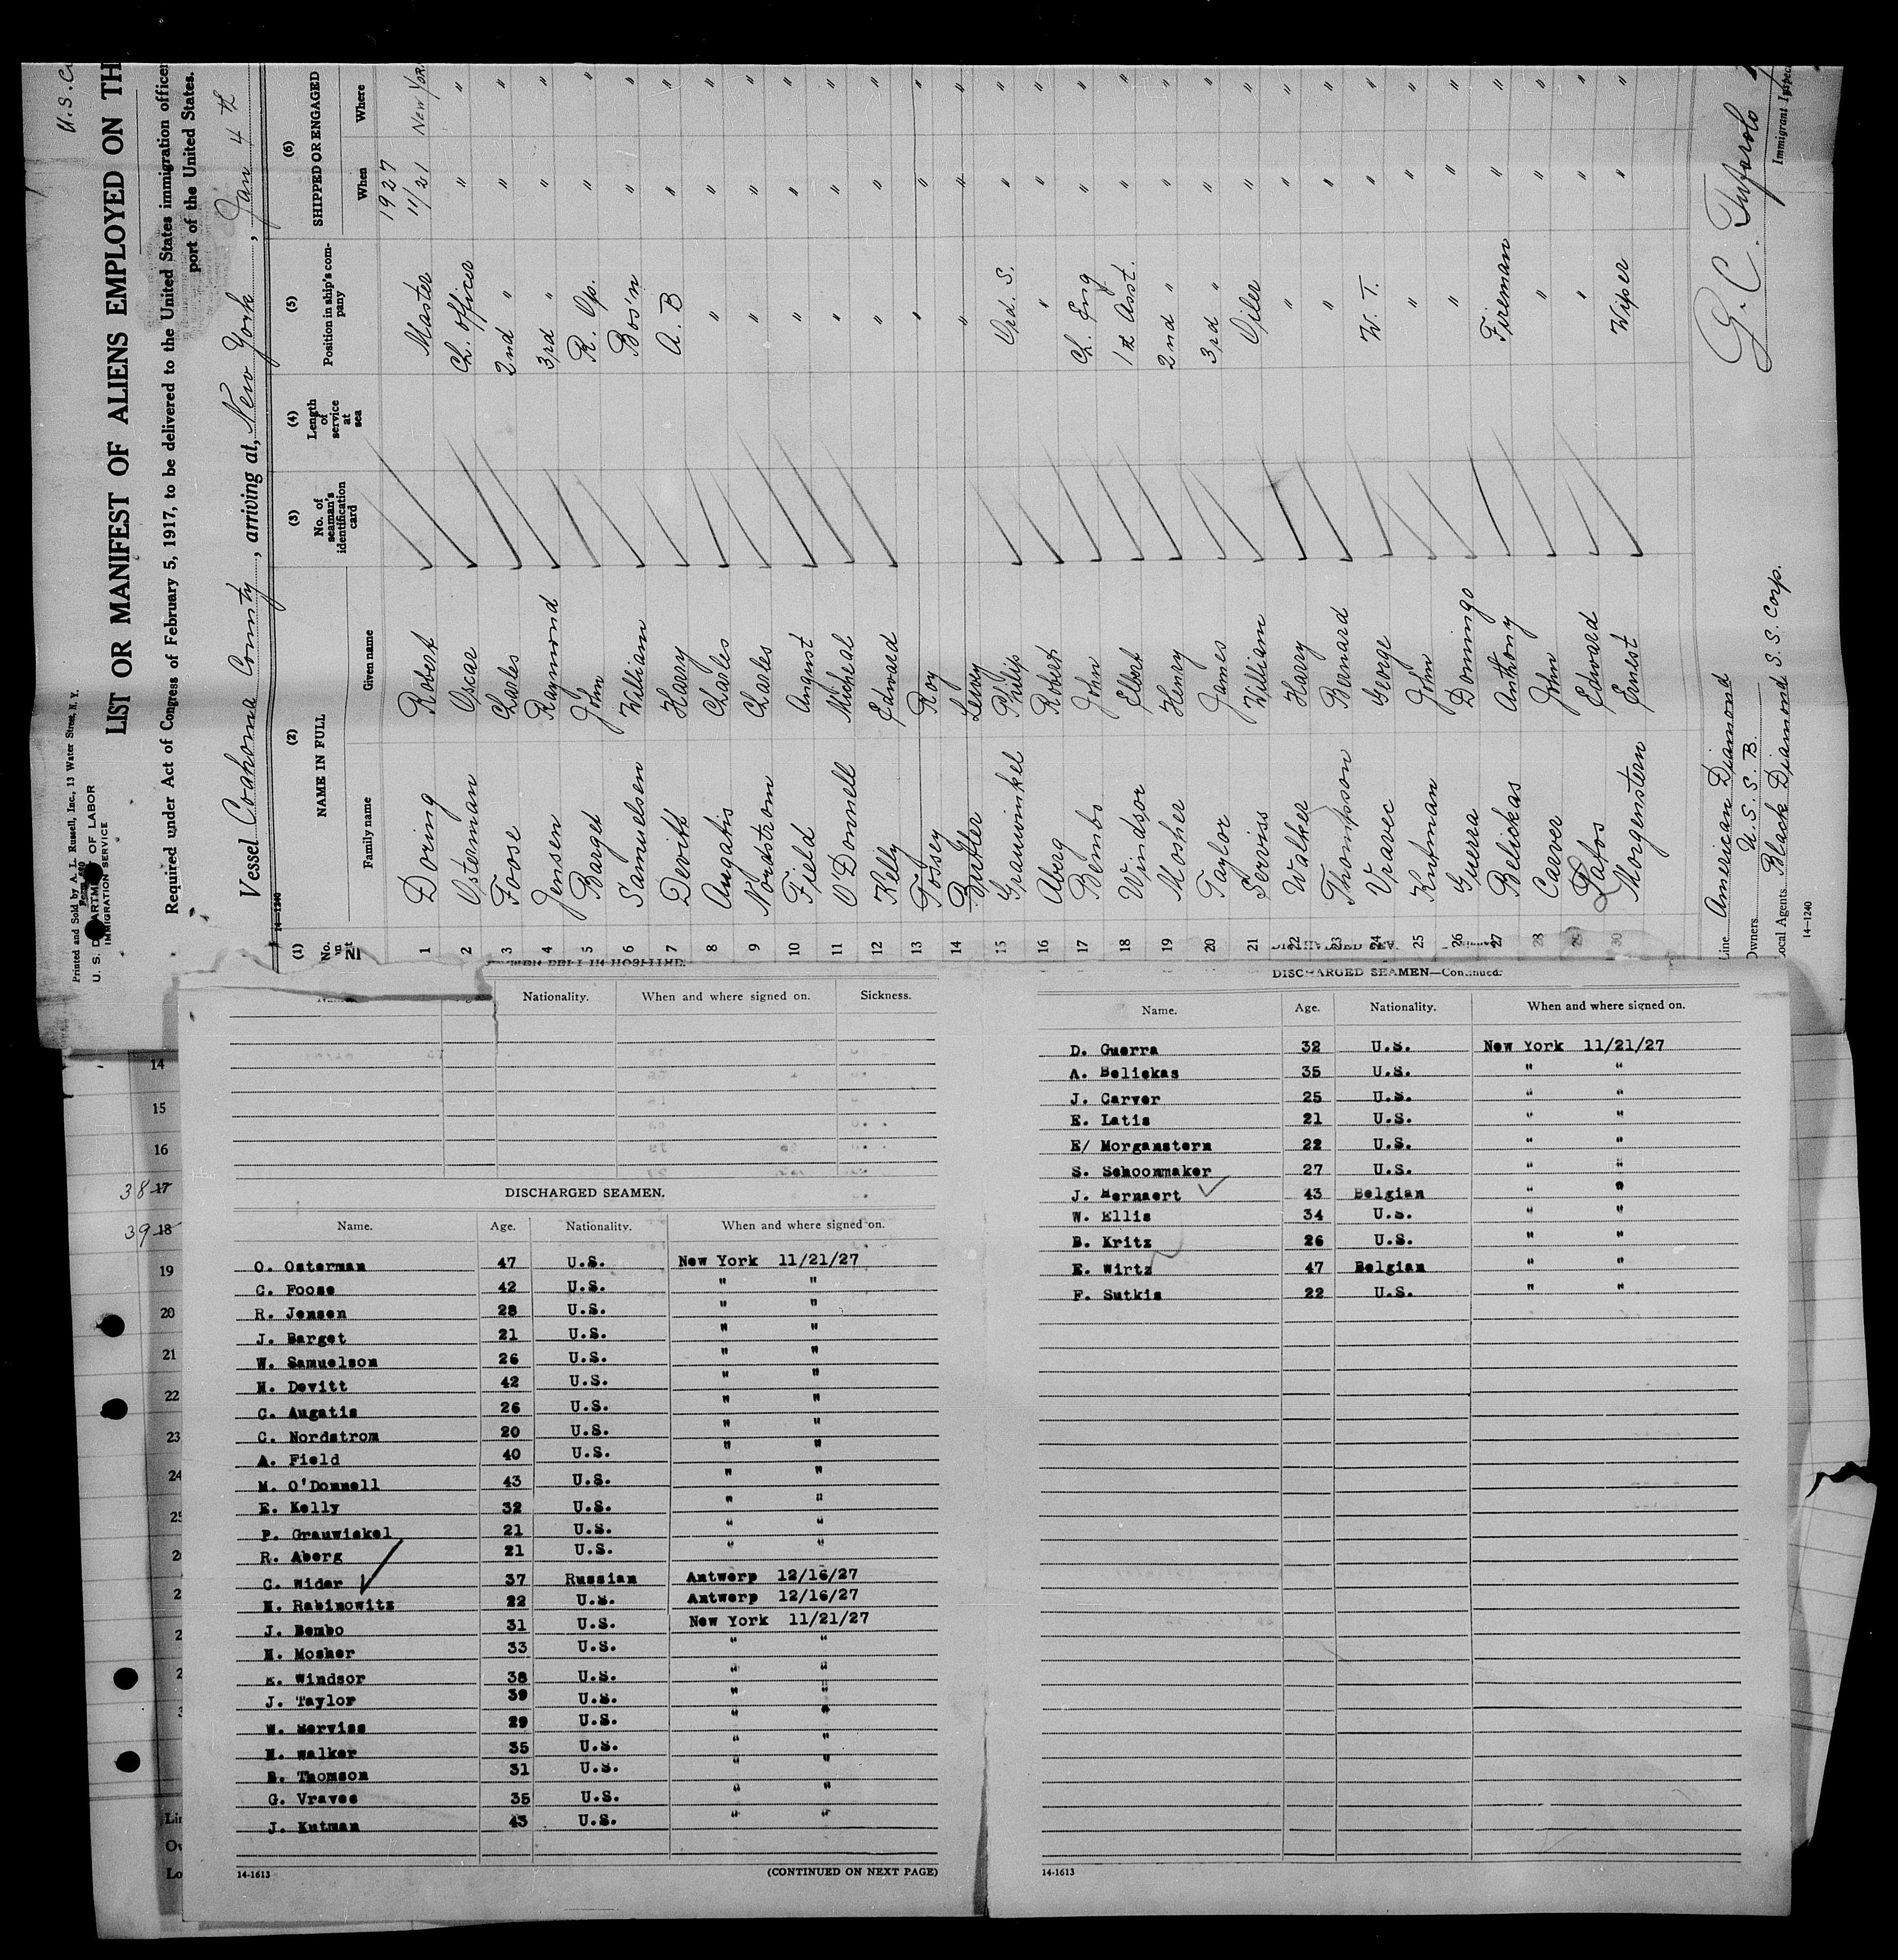 U.S.
Printed and Sold by A. L. Russell, Inc., 13 Water Street, N. Y.
U. S. DEPARTMENT OF LABOR
IMMIGRATION SERVICE
LIST OR MANIFEST OF ALIENS EMPLOYED ON TH
Required under Act of Congress of February 5, 1917, to be delivered to the United States immigration officer
port of the United States.
Vessel Coahoma County, arriving at, New York, Jan 4th
14-1240
(1) (2) (3) (4) (5) (6)
No. on NAME IN FULL No. of seaman's identification card Length of service at sea Position in ship's company SHIPPED OR ENGAGED
Family name Given name When Where
1927
1 Doring Robert Master 11/21 New York
2 Osterman Oscar Ch. Officer " "
3 Foose Charles 2nd " " "
4 Jensen Raymond 3rd " " "
5 Barget John R. Op. " "
6 Samuelsen William Bos'n " "
7 Devitt Harry A. B " "
8 Augatis Charles " " "
9 Nordstrom Charles " " "
10 Field August " " "
11 O'Donnell Micheal " " "
12 Kelly Edward " " "
13 Tossey Roy " " "
14 Butler Leroy " " "
15 Grauwinkel Philip Ord. S. " "
16 Aberg Robert " " "
17 Bembo John Ch. Eng " "
18 Windsor Elbert 1st Asst. " "
19 Mosher Henry 2nd " " "
20 Taylor James 3rd " " "
21 Serviss William Oiler " "
22 Walker Harry " " "
23 Thompson Bernard " " "
24 Vravec George W. T. " "
25 Kutman John " " "
26 Guerra Domingo " " "
27 Belickas Anthony Fireman " "
28 Carver John " " "
29 Latos Edward " " "
30 Morgenstern Ernest Wiper " "
Line American Diamond
Owners U. S. S. B.
Local Agents Black Diamond S. S. Corp.
14-1240
G. C. Tufarolo
Immigrant Inspec
14
15
16
38 17
39 18
19
20
21
22
23
24
Nationality. When and where signed on. Sickness.
DISCHARGED SEAMEN.
Name. Age. Nationality. When and where signed on.
O. Osterman 47 U.S. New York 11/21/27
C. Foose 42 U.S. " "
R. Jensen 28 U.S. " "
J. Barget 21 U.S. " "
W. Samuelson 26 U.S. " "
H. Devitt 42 U.S. " "
C. Augatis 26 U.S. " "
C. Nordstrom 20 U.S. " "
A. Field 40 U.S. " "
M. O'Donnell 43 U.S. " "
E. Kelly 32 U.S. " "
P. Grauwiekel 21 U.S. " "
R. Aberg 21 U.S. " "
C. Wider 37 Russian Antwerp 12/16/27
M. Rabinowitz 22 U.S. Antwerp 12/16/27
J. Bembo 31 U.S. New York 11/21/27
H. Mosher 33 U.S. " "
E. Windsor 38 U.S. " "
J. Taylor 39 U.S. " "
W. Serviss 29 U.S. " "
H. Walker 35 U.S. " "
B. Thomson 31 U.S. " "
G. Vravec 35 U.S. " "
J. Kutman 43 U.S. " "
14-1613 (CONTINUED ON NEXT PAGE)
DISCHARGED SEAMEN—Continued.
Name. Age. Nationality. When and where signed on.
D. Guerra 32 U.S. New York 11/21/27
A. Beliskas 35 U.S. " "
J. Carver 25 U.S. " "
E. Latis 21 U.S. " "
E/ Morganstern 22 U.S. " "
S. Schoonmaker 27 U.S. " "
J. Hernaert 43 Belgian " "
W. Ellis 34 U.S. " "
B. Kritz 26 U.S. " "
E. Wirtz 47 Belgian " "
F. Sutkis 22 U.S. " "
14-1613